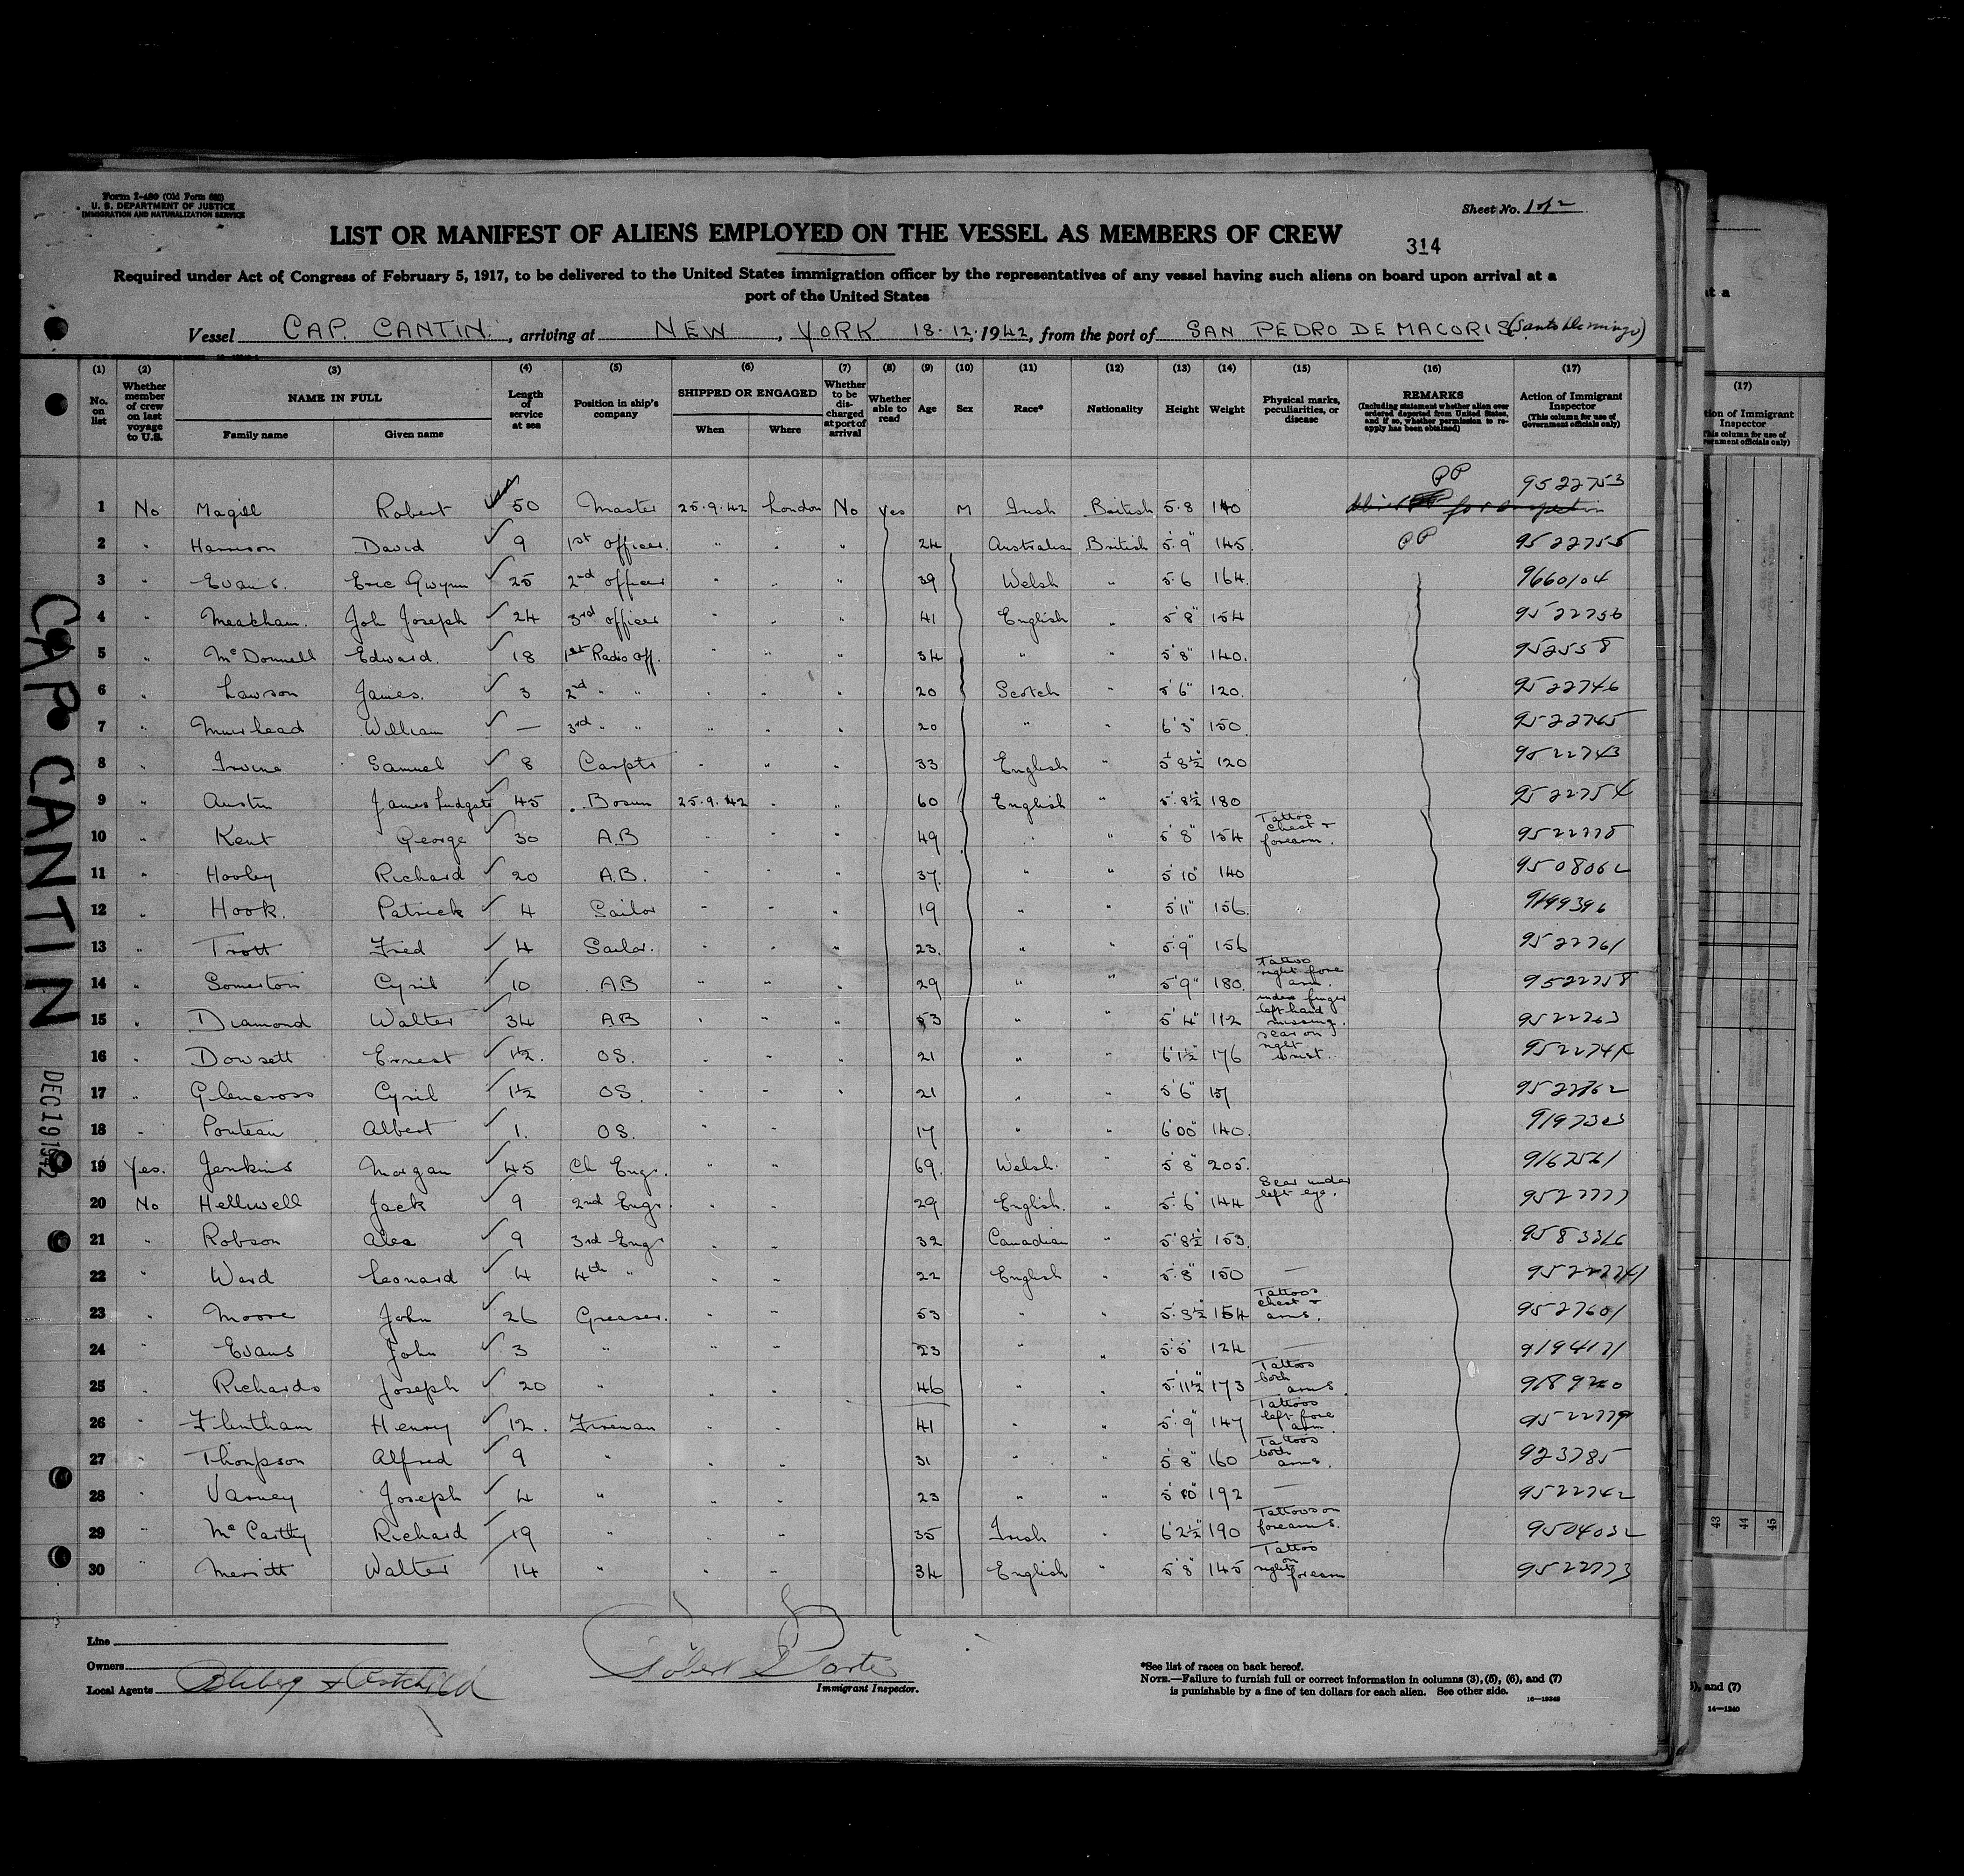 Form I-480 (Old Form 680)
U. S. DEPARTMENT OF JUSTICE
IMMIGRATION AND NATURALIZATION SERVICE
Sheet No. 1 of 2
LIST OR MANIFEST OF ALIENS EMPLOYED ON THE VESSEL AS MEMBERS OF CREW
314
Required under Act of Congress of February 5, 1917, to be delivered to the United States immigration officer by the representatives of any vessel having such aliens on board upon arrival at a
port of the United States
Vessel CAP. CANTIN., arriving at NEW, YORK 18.12.1942, from the port of SAN PEDRO DE MACORIS (Santo Domingo)
(1) No. on list (2) Whether member of crew on last voyage to U.S. (3) NAME IN FULL Family name Given name (4) Length of service at sea (5) Position in ship's company (6) SHIPPED OR ENGAGED When Where (7) Whether to be discharged at port of arrival (8) Whether able to read (9) Age (10) Sex (11) Race* (12) Nationality (13) Height (14) Weight (15) Physical marks, peculiarities, or disease (16) REMARKS (Including statement whether alien ever ordered deported from United States, and if so, whether permission to re-apply has been obtained) (17) Action of Immigrant Inspector (This column for use of Government officials only)
1 No Magill Robert 50 Master 25.9.42 London No Yes M Irish British 5.8 140 PP 9522753
2 " Harrison David 9 1st officer " " " 24 Australian British 5.9" 145. PP 9522755
3 " Evans. Eric Gwynn 25 2nd officer " " " 39 Welsh " 5.6 164. 9660104
4 " Meacham. John Joseph 24 3rd officer " " " 41 English " 5'8" 154 9522756
5 " McDonnell Edward. 18 1st Radio Off. " " " 34 " " 5'8" 140. 952558
6 " Lawson James. 3 2nd " " " " " 20 Scotch " 5'6" 120. 9522746
7 " Muirhead William — 3rd " " " " " 20 " " 6'3" 150. 9522765
8 " Irvine Samuel 8 Carptr " " " 33 English " 5'8½" 120 9522743
9 " Austin James Ludgate 45 Bosun 25.9.42 " " 60 English " 5'.8½" 180 9522754
10 " Kent George 30 A.B " " " 49 " " 5'8" 154 Tattoo chest + forearm.
11 " Hooley Richard 20 A.B. " " " 37. " " 5'10" 140 9508062
12 " Hook. Patrick 4 Sailor " " " 19 " " 5'11" 156. 9199396
13 " Trott Fred 4 Sailor. " " " 23. " " 5'.9" 156 9522761
14 " Somerton Cyril 10 A.B " " " 29 " " 5'9" 180. Tattoo right fore arm. 9522758
15 " Diamond Walter 34 A.B " " " 53 " " 5'4" 112 index finger left hand missing. 9522763
16 " Dowsett Ernest 1½. O.S. " " " 21 " " 6'1½" 176 scar on right wrist.
17 " Glencross Cyril 1½ O.S. " " " 21 " " 5'6" 157 9522762
18 " Ponteau Albert 1. O.S. " " 17 " " 6'00" 140.
19 Yes. Jenkins Morgan 45 Ch Engr. " " 69. Welsh. 5'8" 205.
20 No Helliwell Jack 9 2nd Engr. " " 29 English. " 5'.6" 144 Scar under left eye.
21 " Robson Alex 9 3rd Engr " " 32 Canadian " 5'8½" 153. 9583316
22 " Ward Leonard 4 4th " " " 22 English " 5'.8" 150 —
23 " Moore John 26 Greaser. " " 53 " " 5'.3½" 154 Tattoos chest + arms. 9527601
24 " Evans John 3 " " " 23 " " 124 —
25 " Richards Joseph 20 " " " 46 " " 5'.11½" 173 Tattoo both arms.
26 " Flintham Henry 12. Fireman " " 41 " " 5'.9" 147 Tattoos left fore arm.
27 " Thompson Alfred 9 " " " 31 " " 5'8" 160 Tattoos both arms. 923785
28 " Varney Joseph 4 " " " 23 " " 5'10" 192 — 9522742
29 " McCarthy Richard 19 " " " 35 Irish " 6'2½" 190 Tattoos on forearms. 9504032
30 " Merritt Walter 14 " " " 34 English " 5'8" 145 Tattoo on right forearm 9522773
CAP CANTIN
DEC 19 1942
Line
Owners
Local Agents
Robert Porter
Immigrant Inspector.
*See list of races on back hereof.
NOTE.—Failure to furnish full or correct information in columns (3), (5), (6), and (7)
is punishable by a fine of ten dollars for each alien. See other side.
at a
(17)
tion of Immigrant
Inspector
This column for use of
vernment officials only)
43
44
45
), and (7)